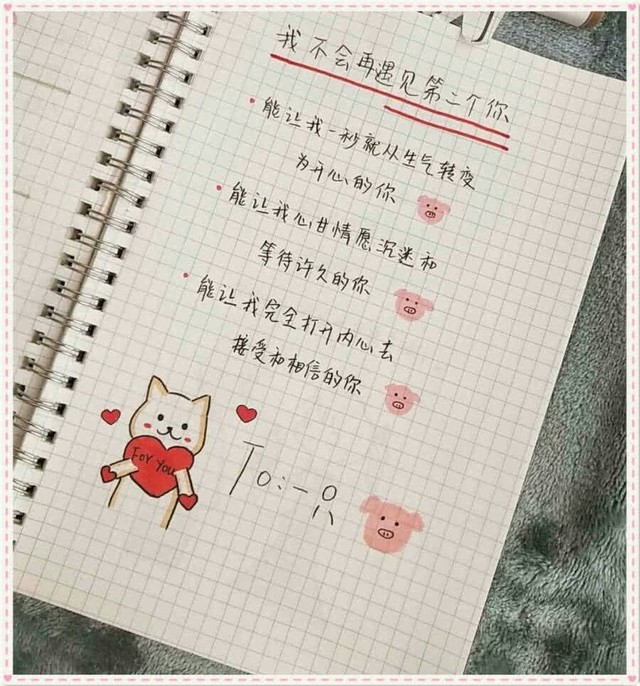 我不会再遇见第二个你
能让我一秒就从生气转变
为开心的你
能让我心甘情愿沉迷和
等待许久的你
能让我完全打开内心去
接受和相信的你
For You
To:一只